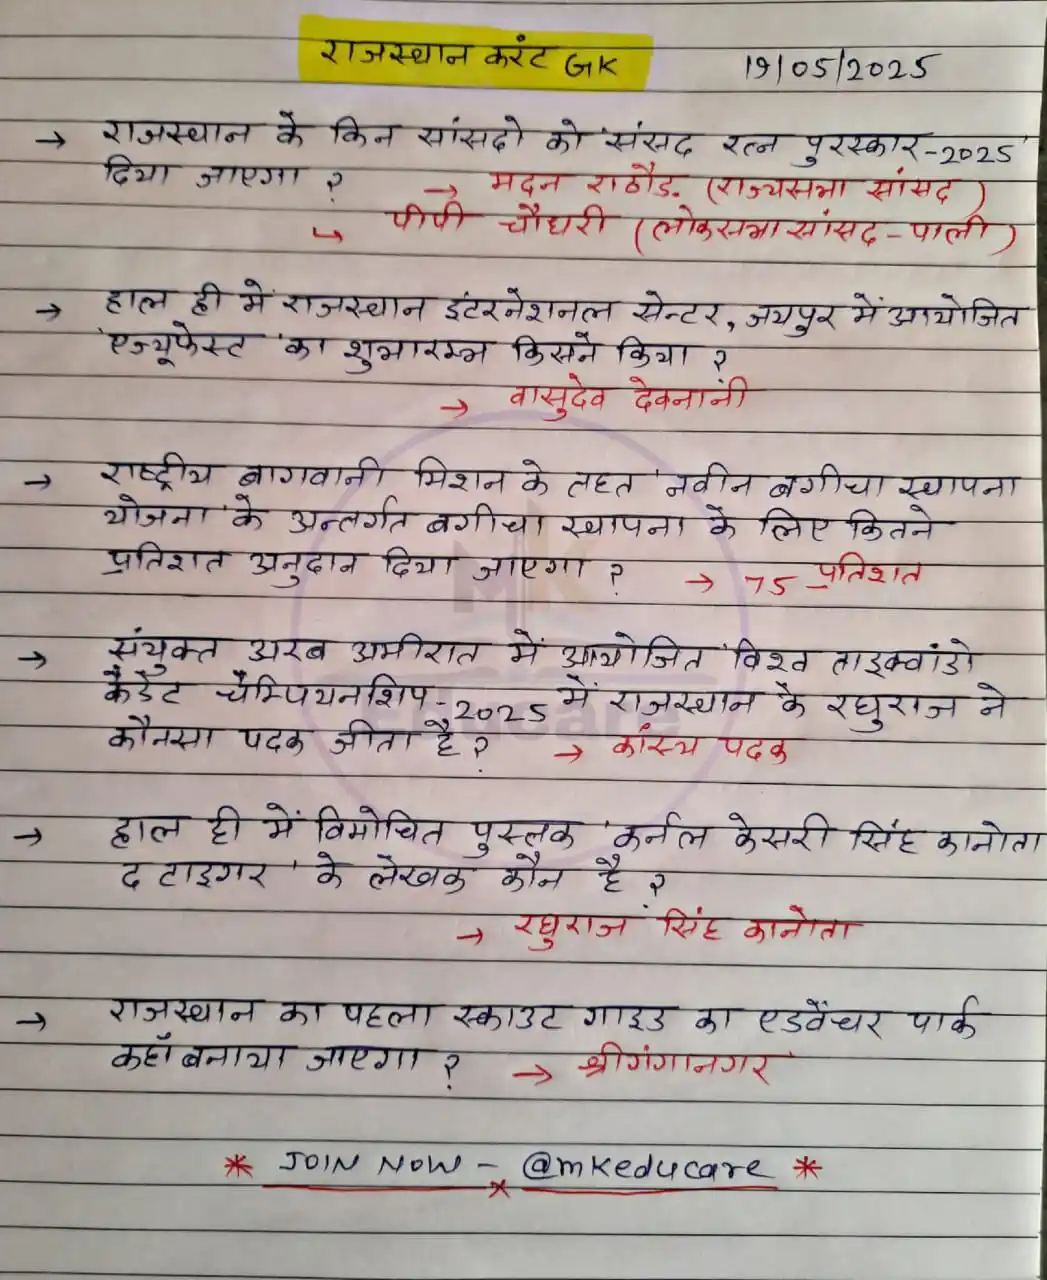 राजस्थान करंट GK 19/05/2025
→ राजस्थान के किन सांसदो को 'संसद रत्न पुरस्कार-2025'
दिया जाएगा ? → मदन राठौड़ (राज्यसभा सांसद)
↳ पीपी चौधरी (लोकसभा सांसद-पाली)
→ हाल ही में राजस्थान इंटरनेशनल सेन्टर, जयपुर में आयोजित
'एज्यूफेस्ट' का शुभारम्भ किसने किया ?
→ वासुदेव देवनानी
→ राष्ट्रीय बागवानी मिशन के तहत 'नवीन बगीचा स्थापना
योजना' के अन्तर्गत बगीचा स्थापना के लिए कितने
प्रतिशत अनुदान दिया जाएगा ? → 75 प्रतिशत
→ संयुक्त अरब अमीरात में आयोजित 'विश्व ताइक्वांडो
कैडेट चैम्पियनशिप-2025 में राजस्थान के रघुराज ने
कौनसा पदक जीता है ? → कांस्य पदक
→ हाल ही में विमोचित पुस्तक 'कर्नल केसरी सिंह कानोता
द टाइगर' के लेखक कौन है ?
→ रघुराज सिंह कानोता
→ राजस्थान का पहला स्काउट गाइड का एडवेंचर पार्क
कहाँ बनाया जाएगा ? → श्रीगंगानगर
* JOIN NOW - @mkeducare *
MK
Educare